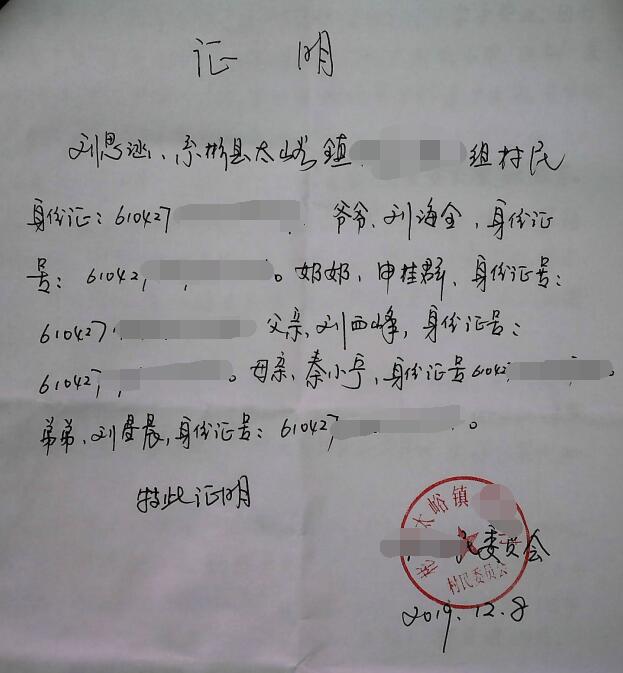 证 明
刘思涵、系彬县太峪镇 组村民
身份证：610427 爷爷、刘海全、身份证
号：61042 。奶奶、申桂群、身份证号：
610427 父亲、刘西峰，身份证号：
61042 。母亲、秦小亭，身份证号61042 。
弟弟、刘昱晨，身份证号：61042 。
特此证明
太峪镇
村民委员会
民委员会
2019.12.8